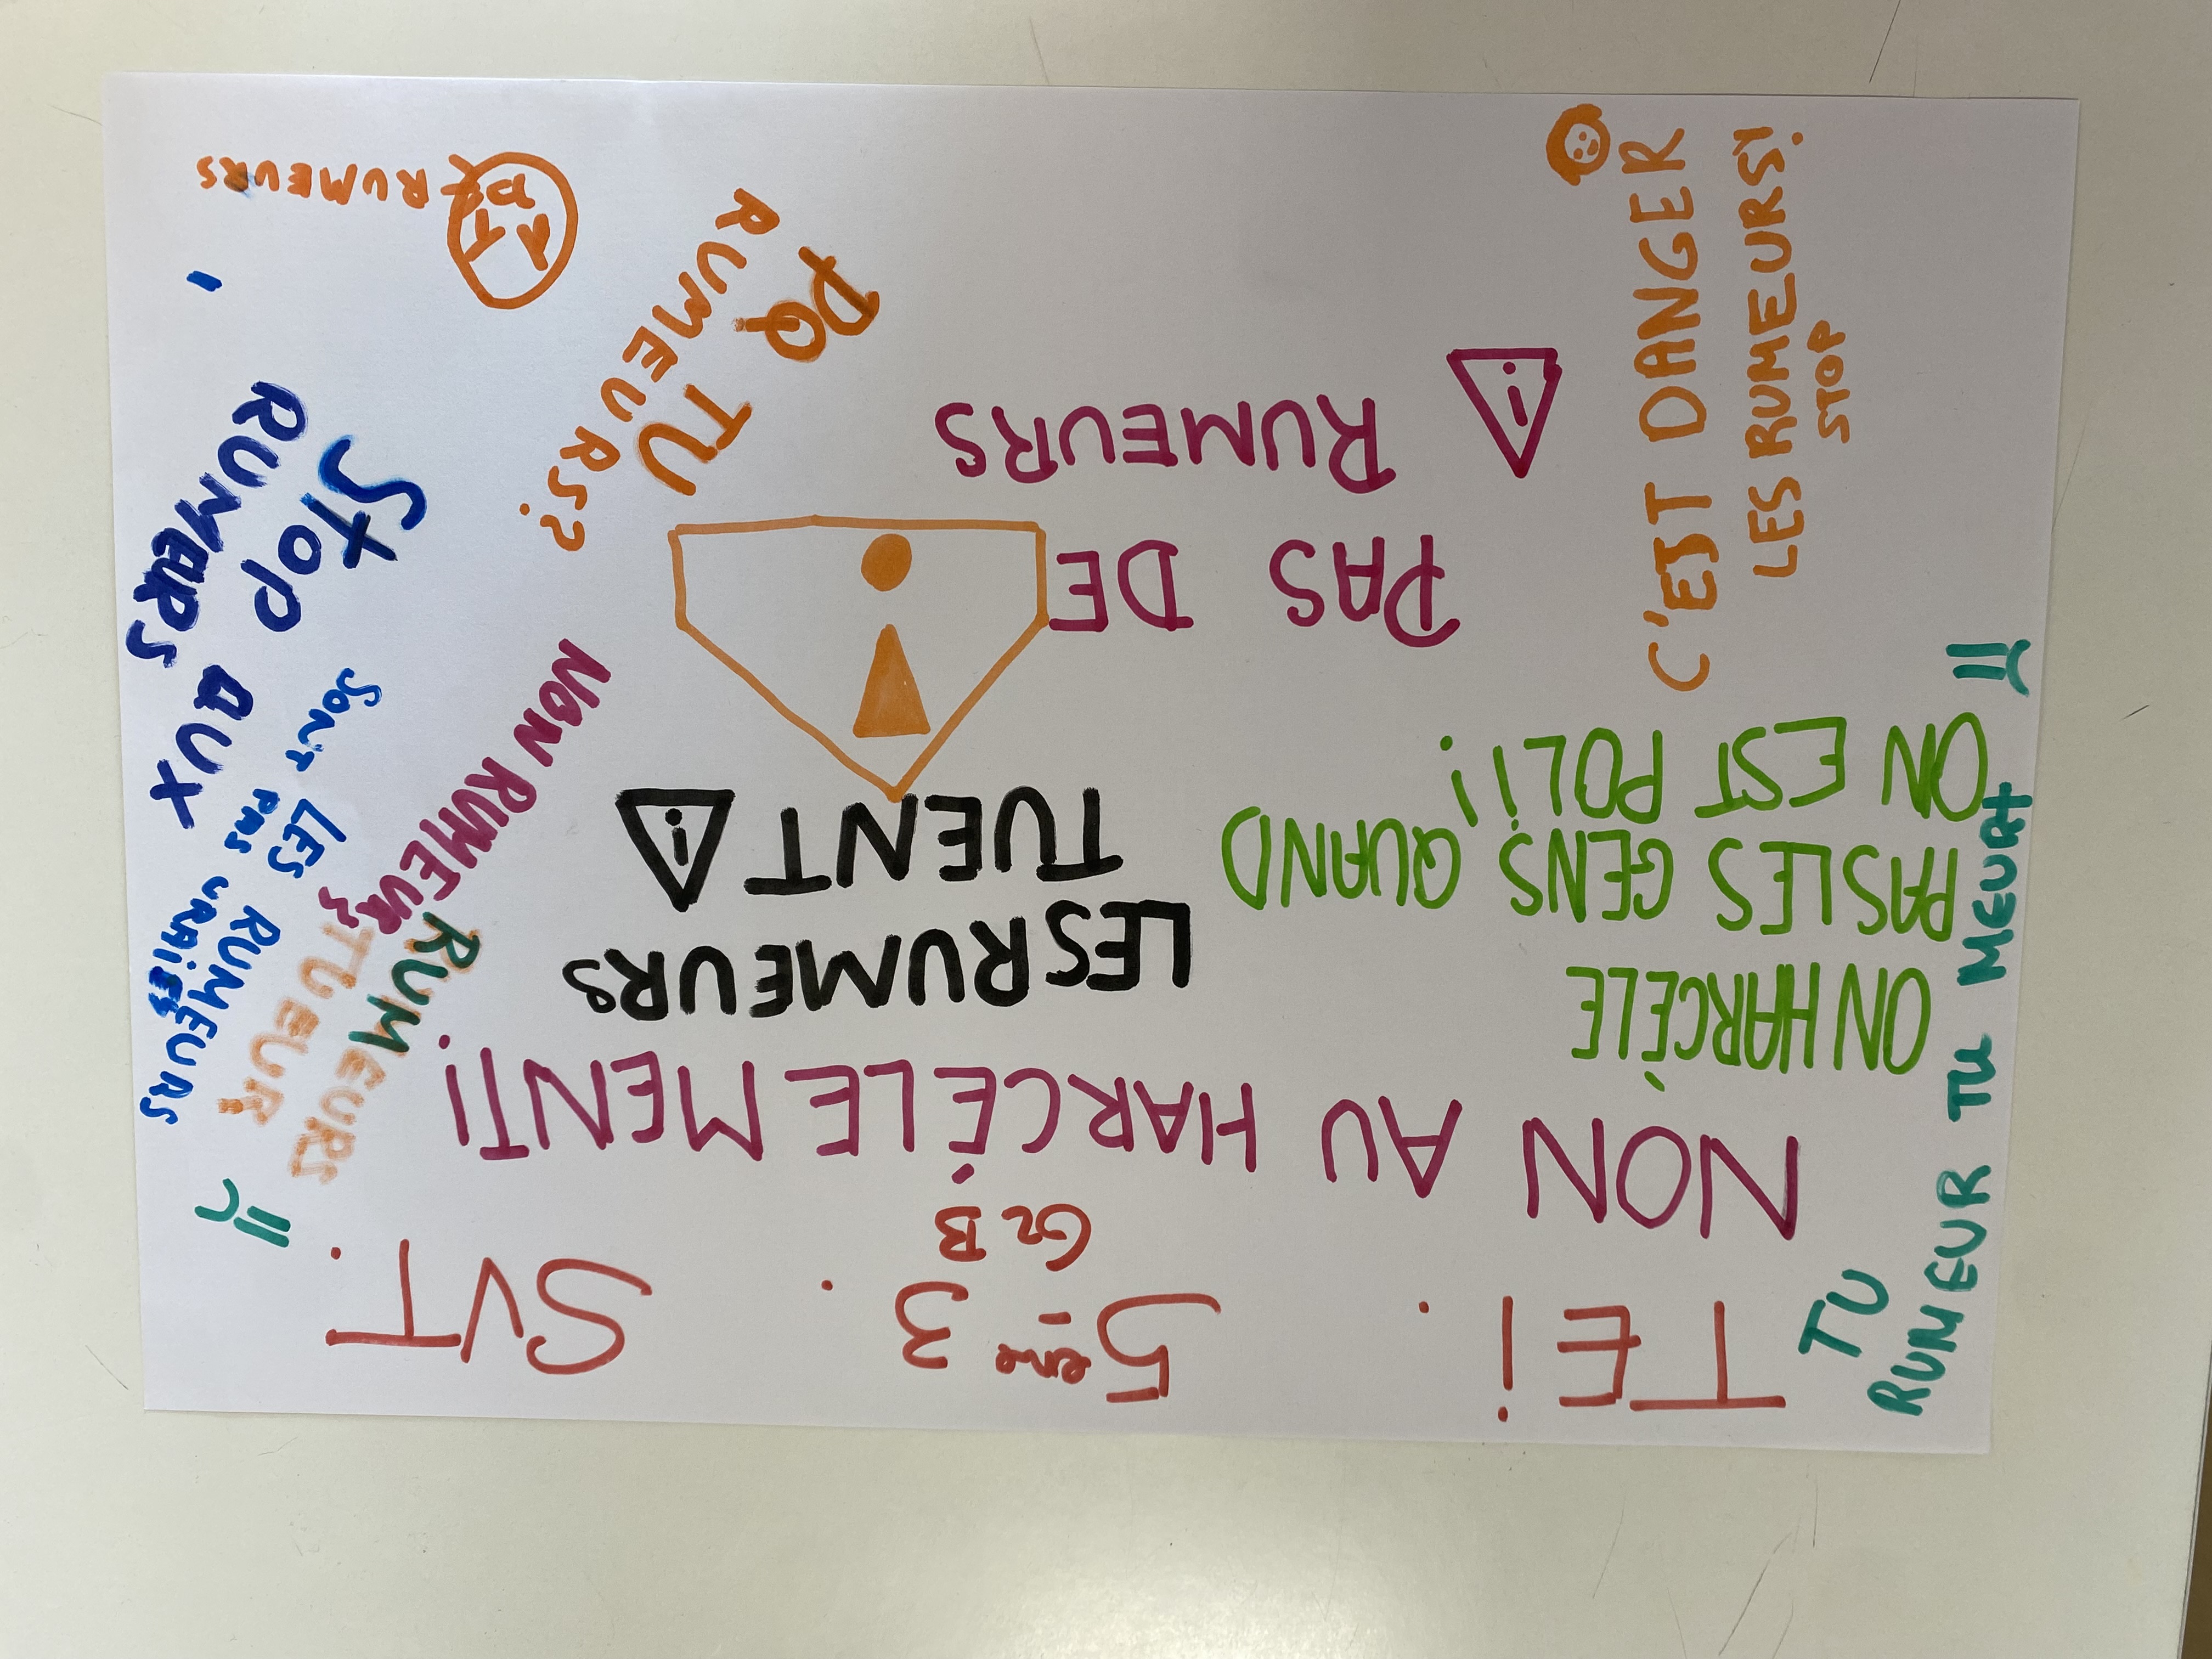 TEi.
5eme 3.
Gr B
SVT.
NON AU HARCÉLEMENT!
ON HARCÈLE
PAS LES GENS QUAND
ON EST POLI!
LES RUMEURS
TUENT
PAS DE
RUMEURS
TU
RUMEUR TU MEURT
C'EST DANGER
LES RUMEURS!
STOP
PQ TU
RUMEURS?
NON RUMEURS
RUMEURS
TUEUR
STOP AUX
RUMEURS
SORT LES RUMEURS
PAS VRAIES
RUMEURS